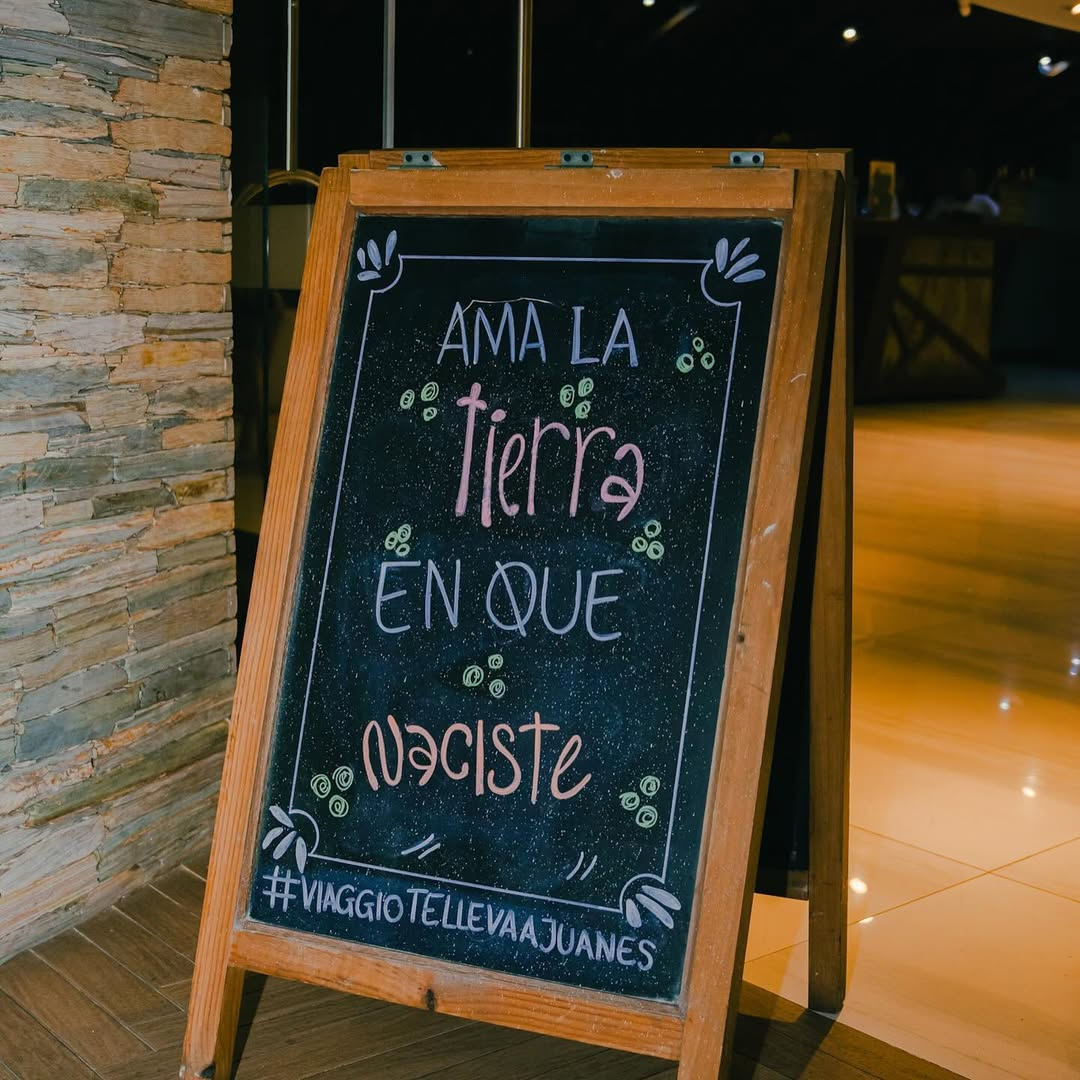 AMA LA
tierra
EN QUE
NaCISTe
#VIAGGIOTELLEVAAJUANES